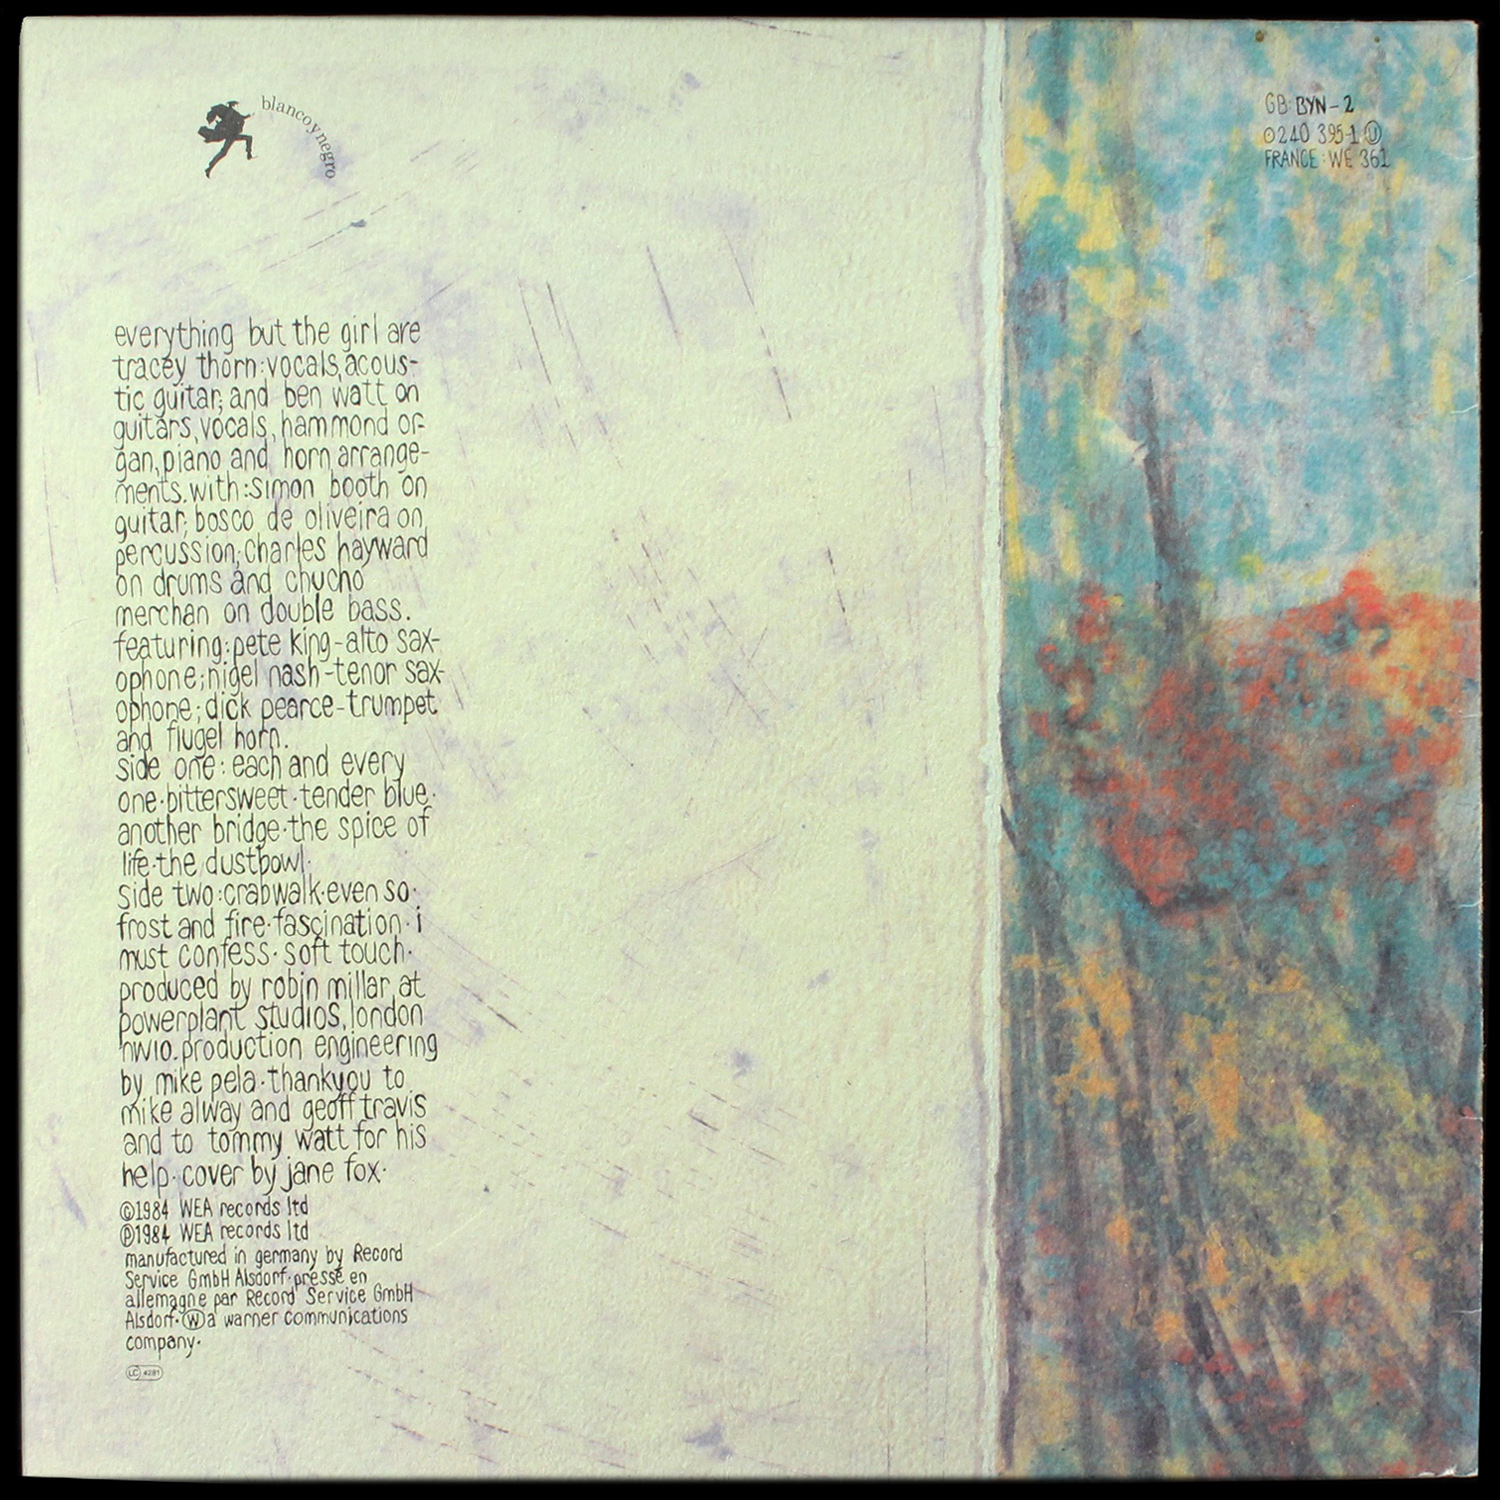 blanco y negro
GB: BYN-2
0240 395-1 Ⓤ
FRANCE: WE 361
everything but the girl are
tracey thorn:vocals,acous-
tic guitar; and ben watt on
guitars,vocals,hammond or-
gan,piano and horn arrange-
ments.with:simon booth on
guitar; bosco de oliveira on
percussion;charles hayward
on drums and chucho
merchan on double bass.
featuring:pete king-alto sax-
ophone;nigel nash-tenor sax-
ophone;dick pearce-trumpet
and flugel horn.
side one: each and every
one·bittersweet·tender blue·
another bridge·the spice of
life·the dustbowl·
side two:crabwalk·even so·
frost and fire·fascination·i
must confess·soft touch·
produced by robin millar at
powerplant studios,london
nw10.production engineering
by mike pela·thankyou to
mike alway and geoff travis
and to tommy watt for his
help·cover by jane fox·
©1984 WEA records ltd
℗1984 WEA records ltd
manufactured in germany by Record
Service GmbH Alsdorf·pressé en
allemagne par Record Service GmbH
Alsdorf·Ⓦ a warner communications
company·
LC 4281